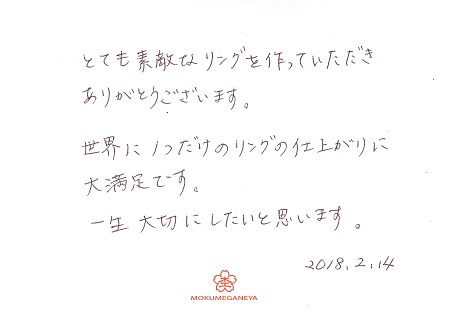 とても素敵なリングを作っていただき
ありがとうございます。
世界に1つだけのリングの仕上がりに
大満足です。
一生大切にしたいと思います。
2018.2.14
MOKUMEGANEYA